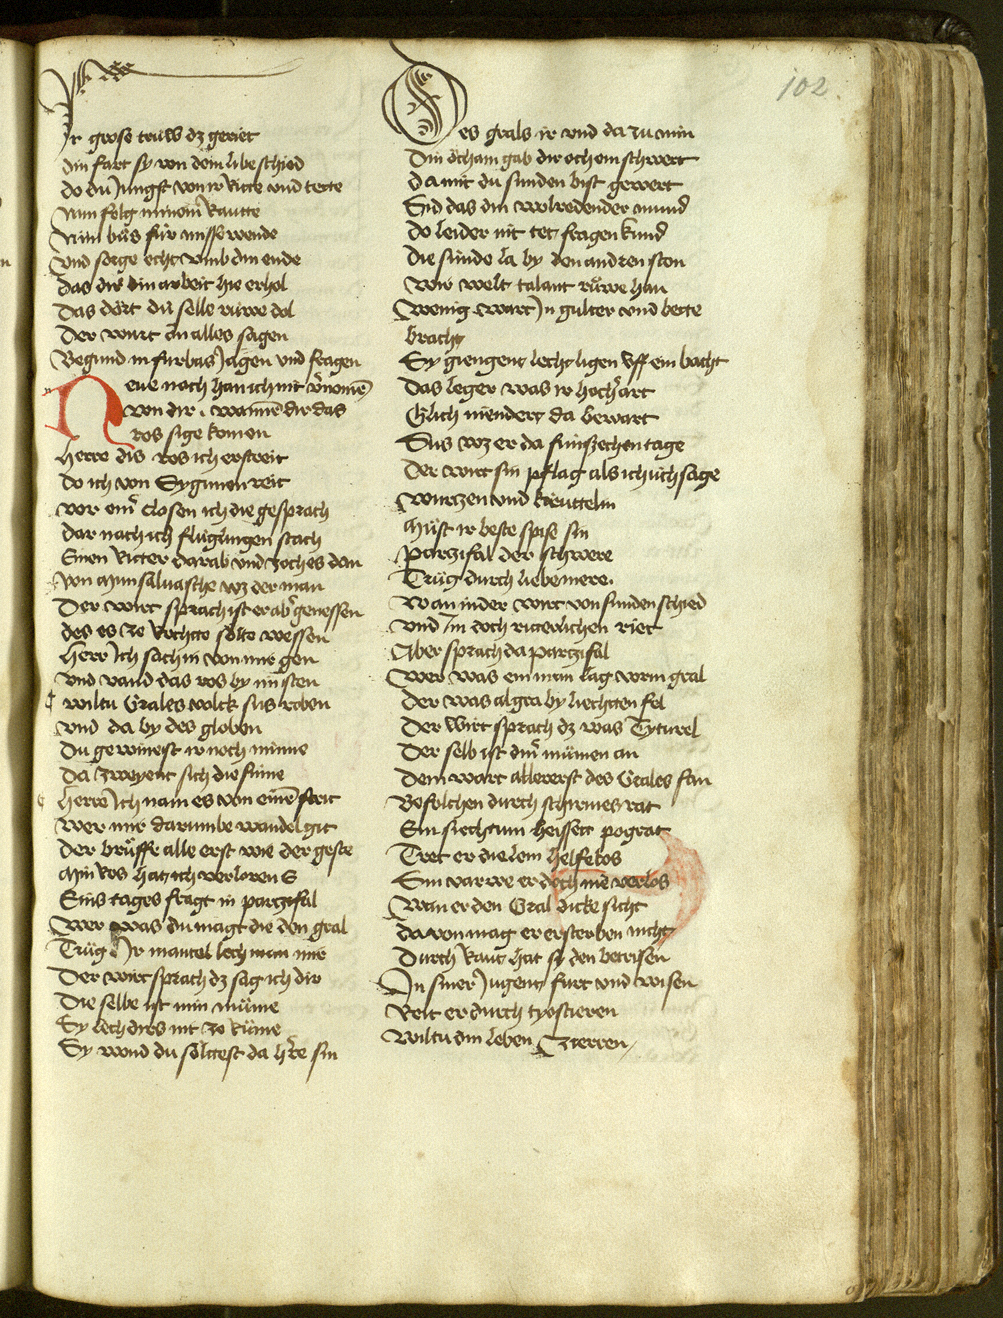 102
Ir grose truw dz geriet
din fart sy von dem libe schied
do du Jungst von ir Ritte und tette
Nim folg minem Rautte
Nim bůs fúr misse wende
Vnd sorge echt vmb din ende
das dir din arbeit hie erhol
Das dört du selle ruwe dol
Der wirt in alles sagen
Begund in furbas Jagen vnd fragen
Neue noch han ich nit v'nomē
von dir wannē dir das
ros sige komen
Herre dis ros ich erstreit
do ich von Sygunen reit
vor einr closen ich die gesprach
dar nach ich fluglingen stach
Einen Ritter darab vnd zoch es dan
Von Munsaluasche wz der man
Der wirt sprach ist er ab' genessen
des es zo Rechtte solte wessen
Herr Ich sach in von mir gen
Vnd vand das ros by mir sten
wiltu Grales volck sus roben
vnd da by des globen
Du gewinest ir noch minne
Da zweyent sich die sinne
Herre Ich nam es von einē strit
Wer mir darumbe wandel git
Der brúffe alle erst wie der geste
Min ros hat ich verloren E
Eins tages fragt in partzifal
Wer was du magt die den gral
Trúg Ir mantel lech man mir
Der wirt sprach dz sag ich dir
Die selbe ist min múme
Sy lech dirs nit zo rúme
Sy wond du soltest da h're sin
Des grals ir vnd da zu min
Din öcham gab dir och ein schwert
Da mit du sunden bist gewert
Sid das din wolredender mund
Do leider nit tet fragen kund
Die sunde la by den andren sten
Wir welt talant rúwe han
Wenig wart In gulter vnd bette
bracht
Sy giengent lecht ligen vff ein bacht
Das leger was ir hoch' art
Glich niendert da bewart
Sus wz er da funfzechen tage
Der wirt sin pflag als ich úch sage
Wurtzen vnd kruttelin
Must ir beste spise sin
Partzifal der schwere
Trúg durch liebe mere
Wan in der wirt von sunden schied
Vnd Im doch ritterlichen riet
Aber sprach da partzifal
Wer was ein man lag vorm gral
Der was algra by liechten fel
Der wirt sprach dz was Tyturel
Der selb ist dinr mümen an
Dem wart allererst des Grales fan
Befolchen durch schirmes rat
Ein siechtum heissett pograt
Tret er die lem helfelos
Sin varwe er doch nie verlos
Wan er den Gral dicke sicht
Da von mag er ersterben nicht
Durch Raut hat sy den betrisen
In siner Jugent furt vnd wisen
Reit er durch tyostieren
Wiltu din leben Czierren